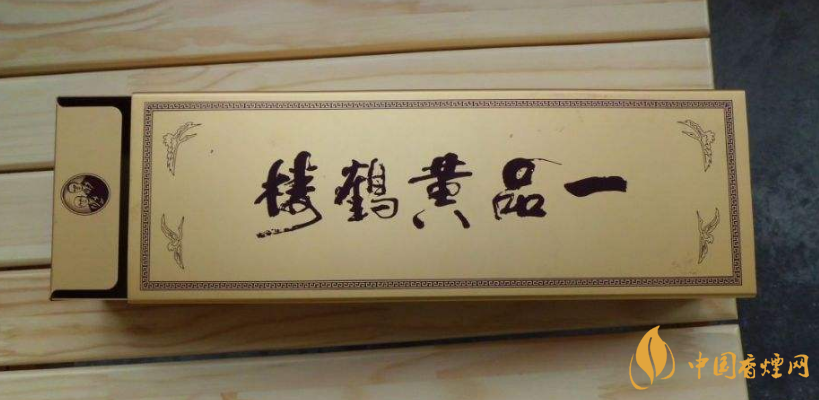 一品黄鹤楼
中国香煙网